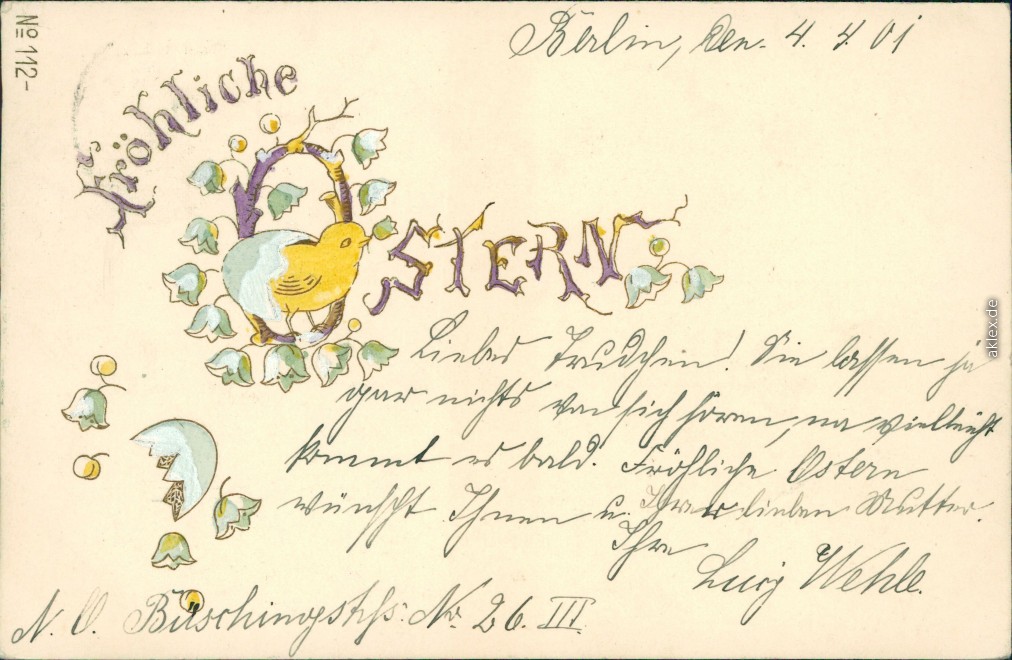 No 112-
Berlin, den. 4. 4. 01
Fröhliche
OSTERN
Liebes Trudchen! Sie lassen ja
gar nichts von sich hören, na vielleicht
kommt es bald. Fröhliche Ostern
wünscht Ihnen u. Ihrer lieben Mutter.
Ihre
Lucy Wehle.
N. O. Büschingstr: No. 26. III.
aklex.de